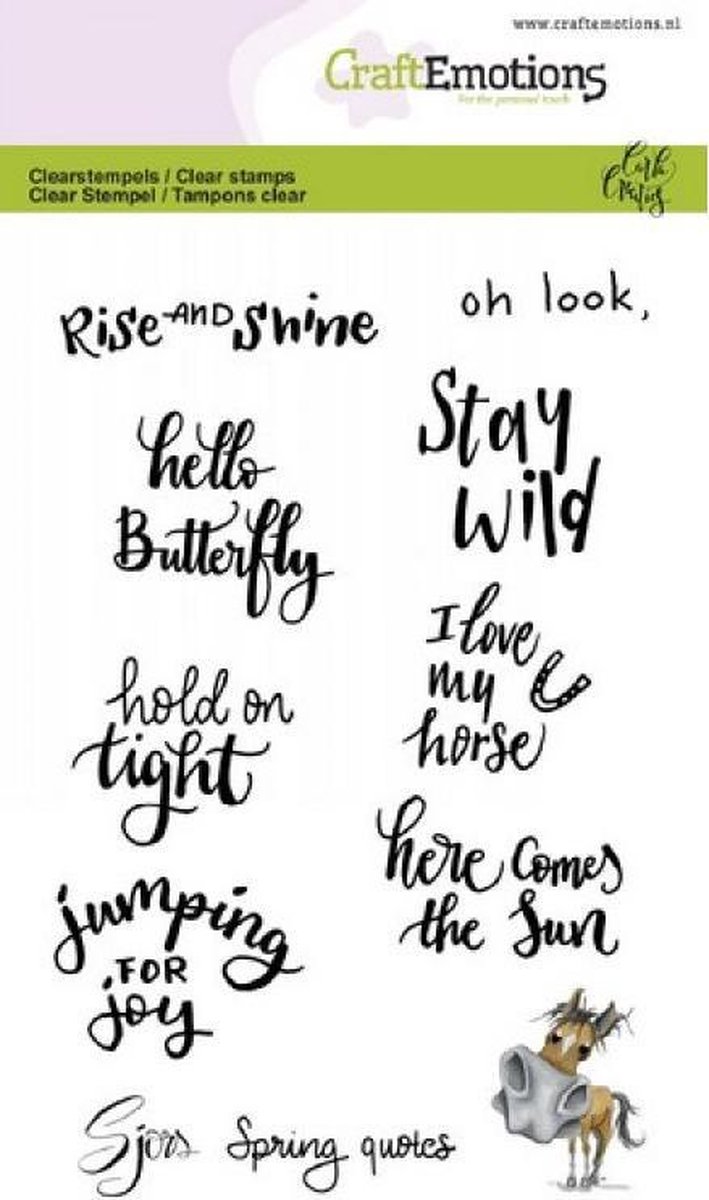 www.craftemotions.nl
CraftEmotions
For the personal touch
Clearstempels / Clear stamps
Clear Stempel / Tampons clear
Carla Creaties
Rise AND Shine
oh look,
hello
Butterfly
Stay
Wild
I love
my
horse
hold on
tight
here comes
the Sun
jumping
FOR
joy
Sjors Spring quotes